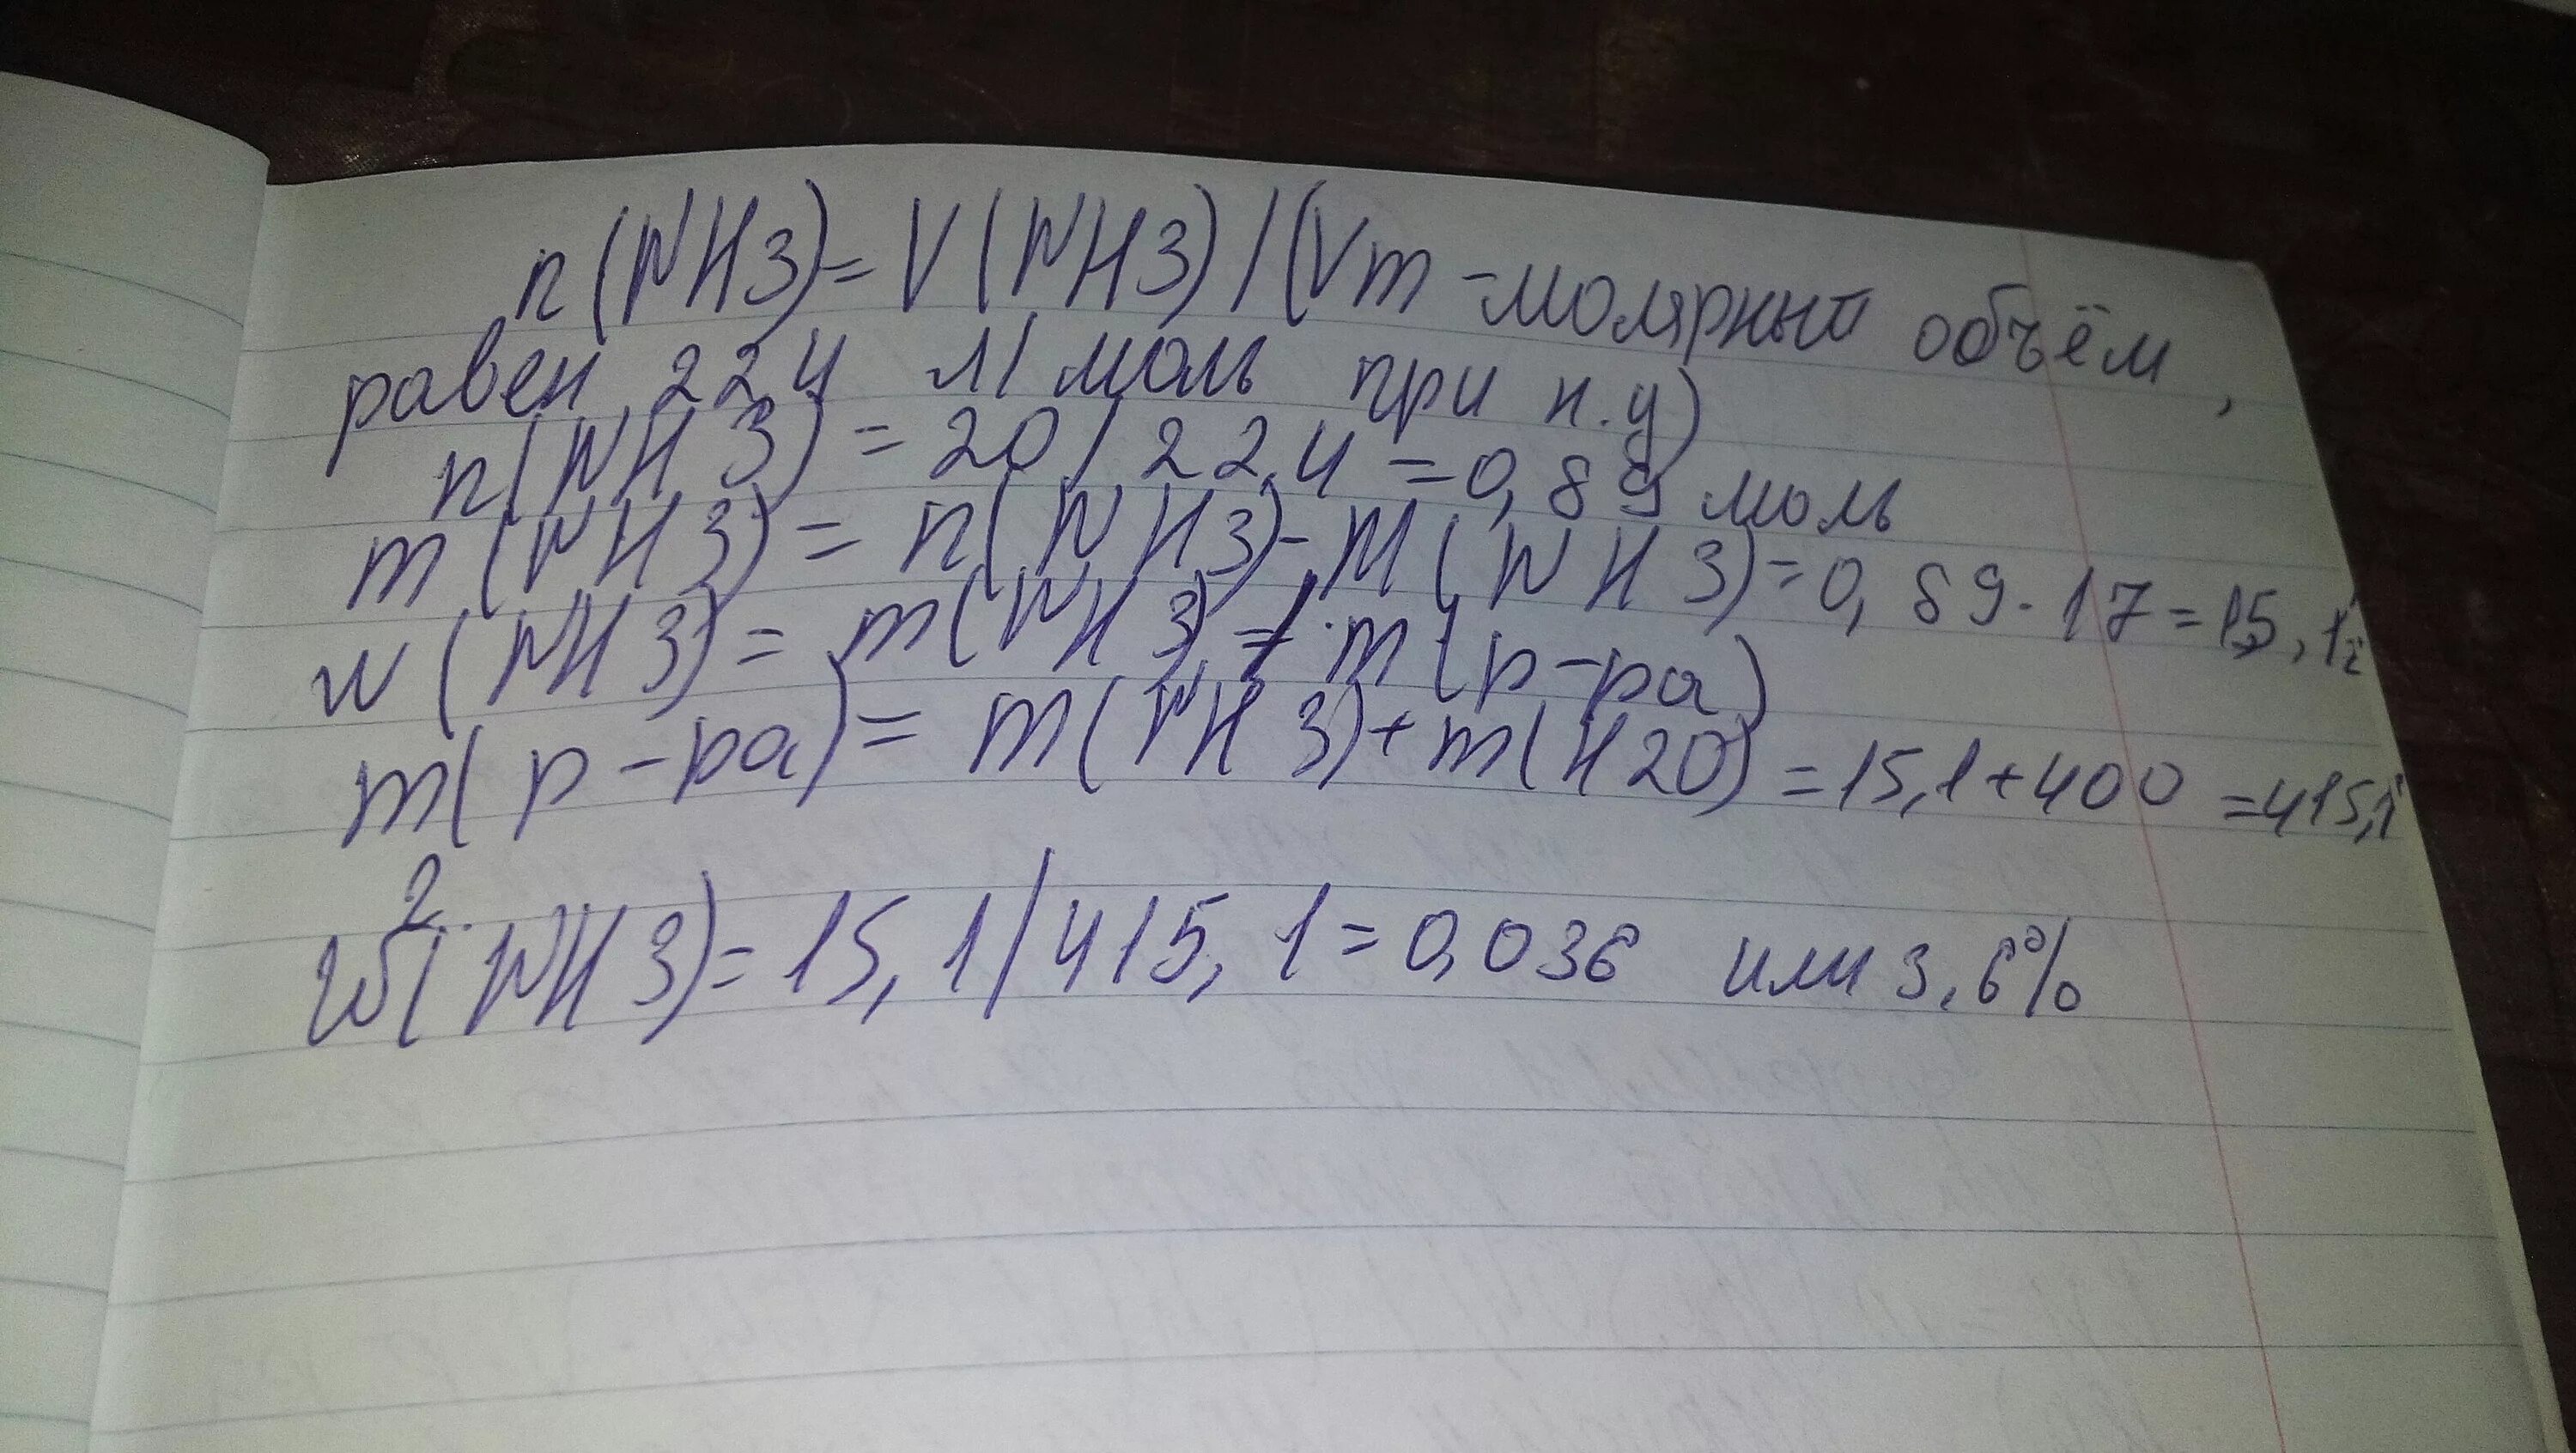 n(NH3)=V(NH3)/(Vm-молярный объём,
равен 22,4 л/моль при н.у)
n(NH3)=20/22,4=0,89 моль
m(NH3)=n(NH3)-M(NH3)=0,89·17=15,1г
w(NH3)=m(NH3)/·m(р-ра)
m(р-ра)=m(NH3)+m(H2O)=15,1+400=415,1
г
w(NH3)=15,1/415,1=0,036 или 3,6%